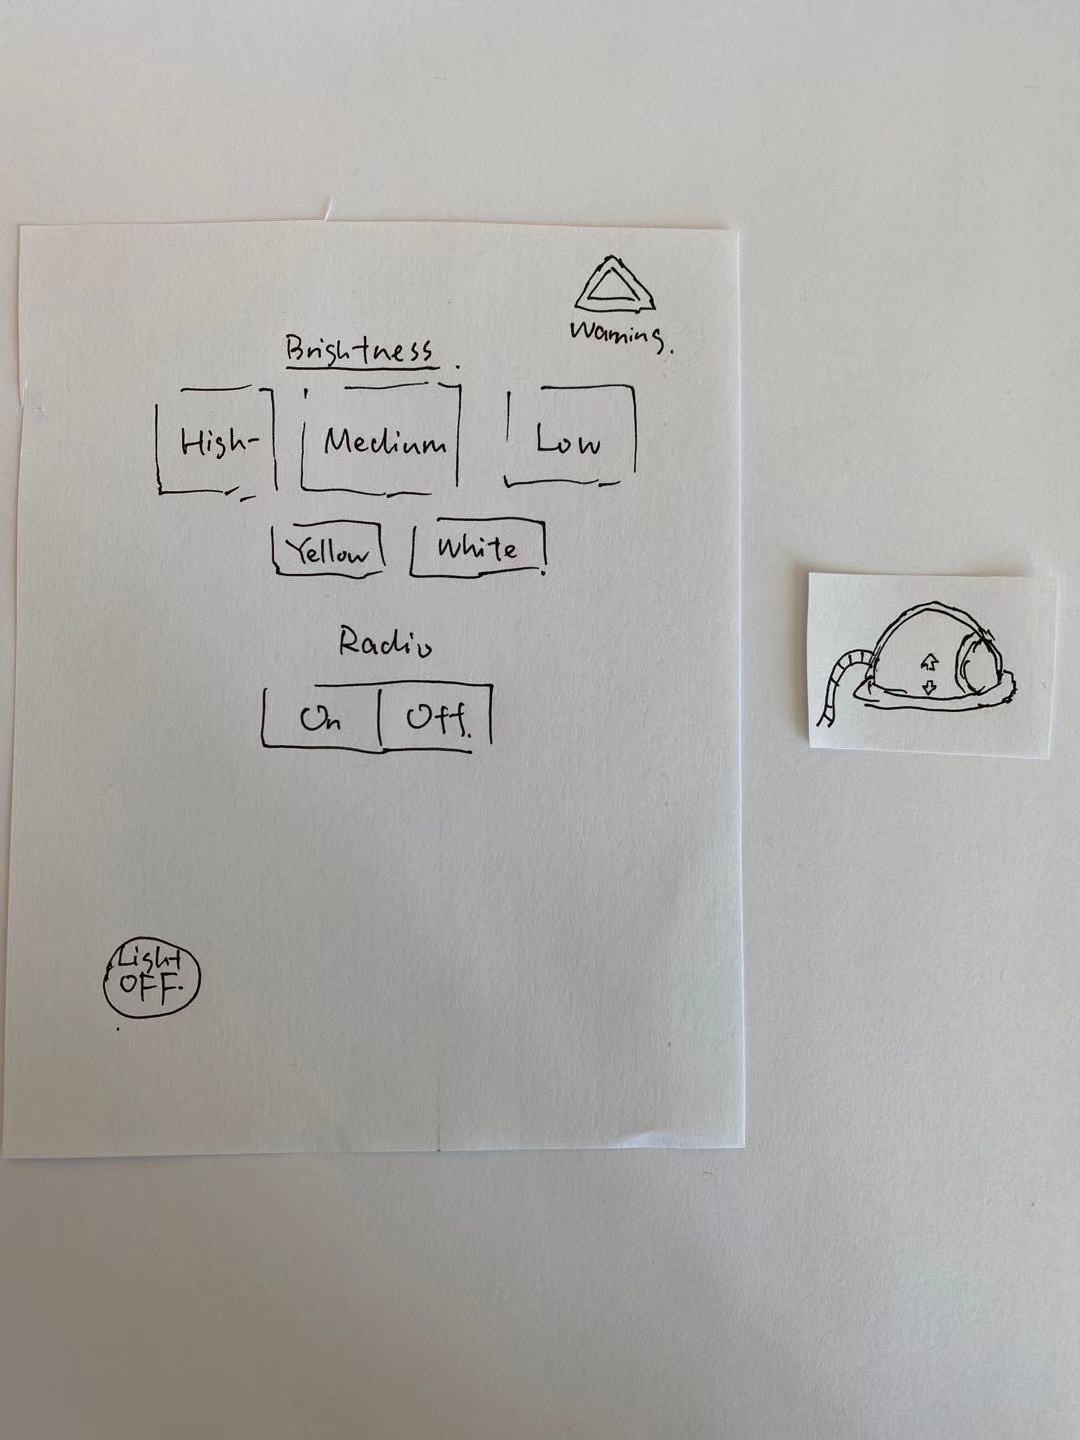 Warning.
Brightness.
High Medium Low
Yellow White
Radio
On Off.
Light
OFF.